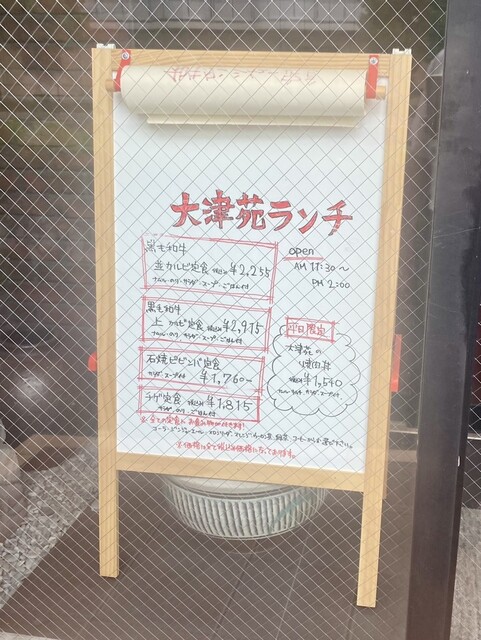 大津苑ランチ
黒毛和牛
並カルビ定食 税込み ¥2,255
ナムル・のり・サラダ・スープ・ごはん付
open
AM 11:30～
PM 2:00
黒毛和牛
上カルビ定食 税込み ¥2,915
ナムル・のり・サラダ・スープ・ごはん付
石焼ビビンバ定食
サラダ・スープ付 税込み ¥1,760-
チゲ定食 税込み ¥1,815
サラダ・のり・ごはん付
平日限定
大津苑の
焼肉丼
税込み ¥1,540
サラダ・スープ付
※全ての定食にお飲み物が付きます!
コーラ・ジンジャーエール・メロンソーダ・オレンジ・ウーロン茶
※価格は全て税込み価格になっております。